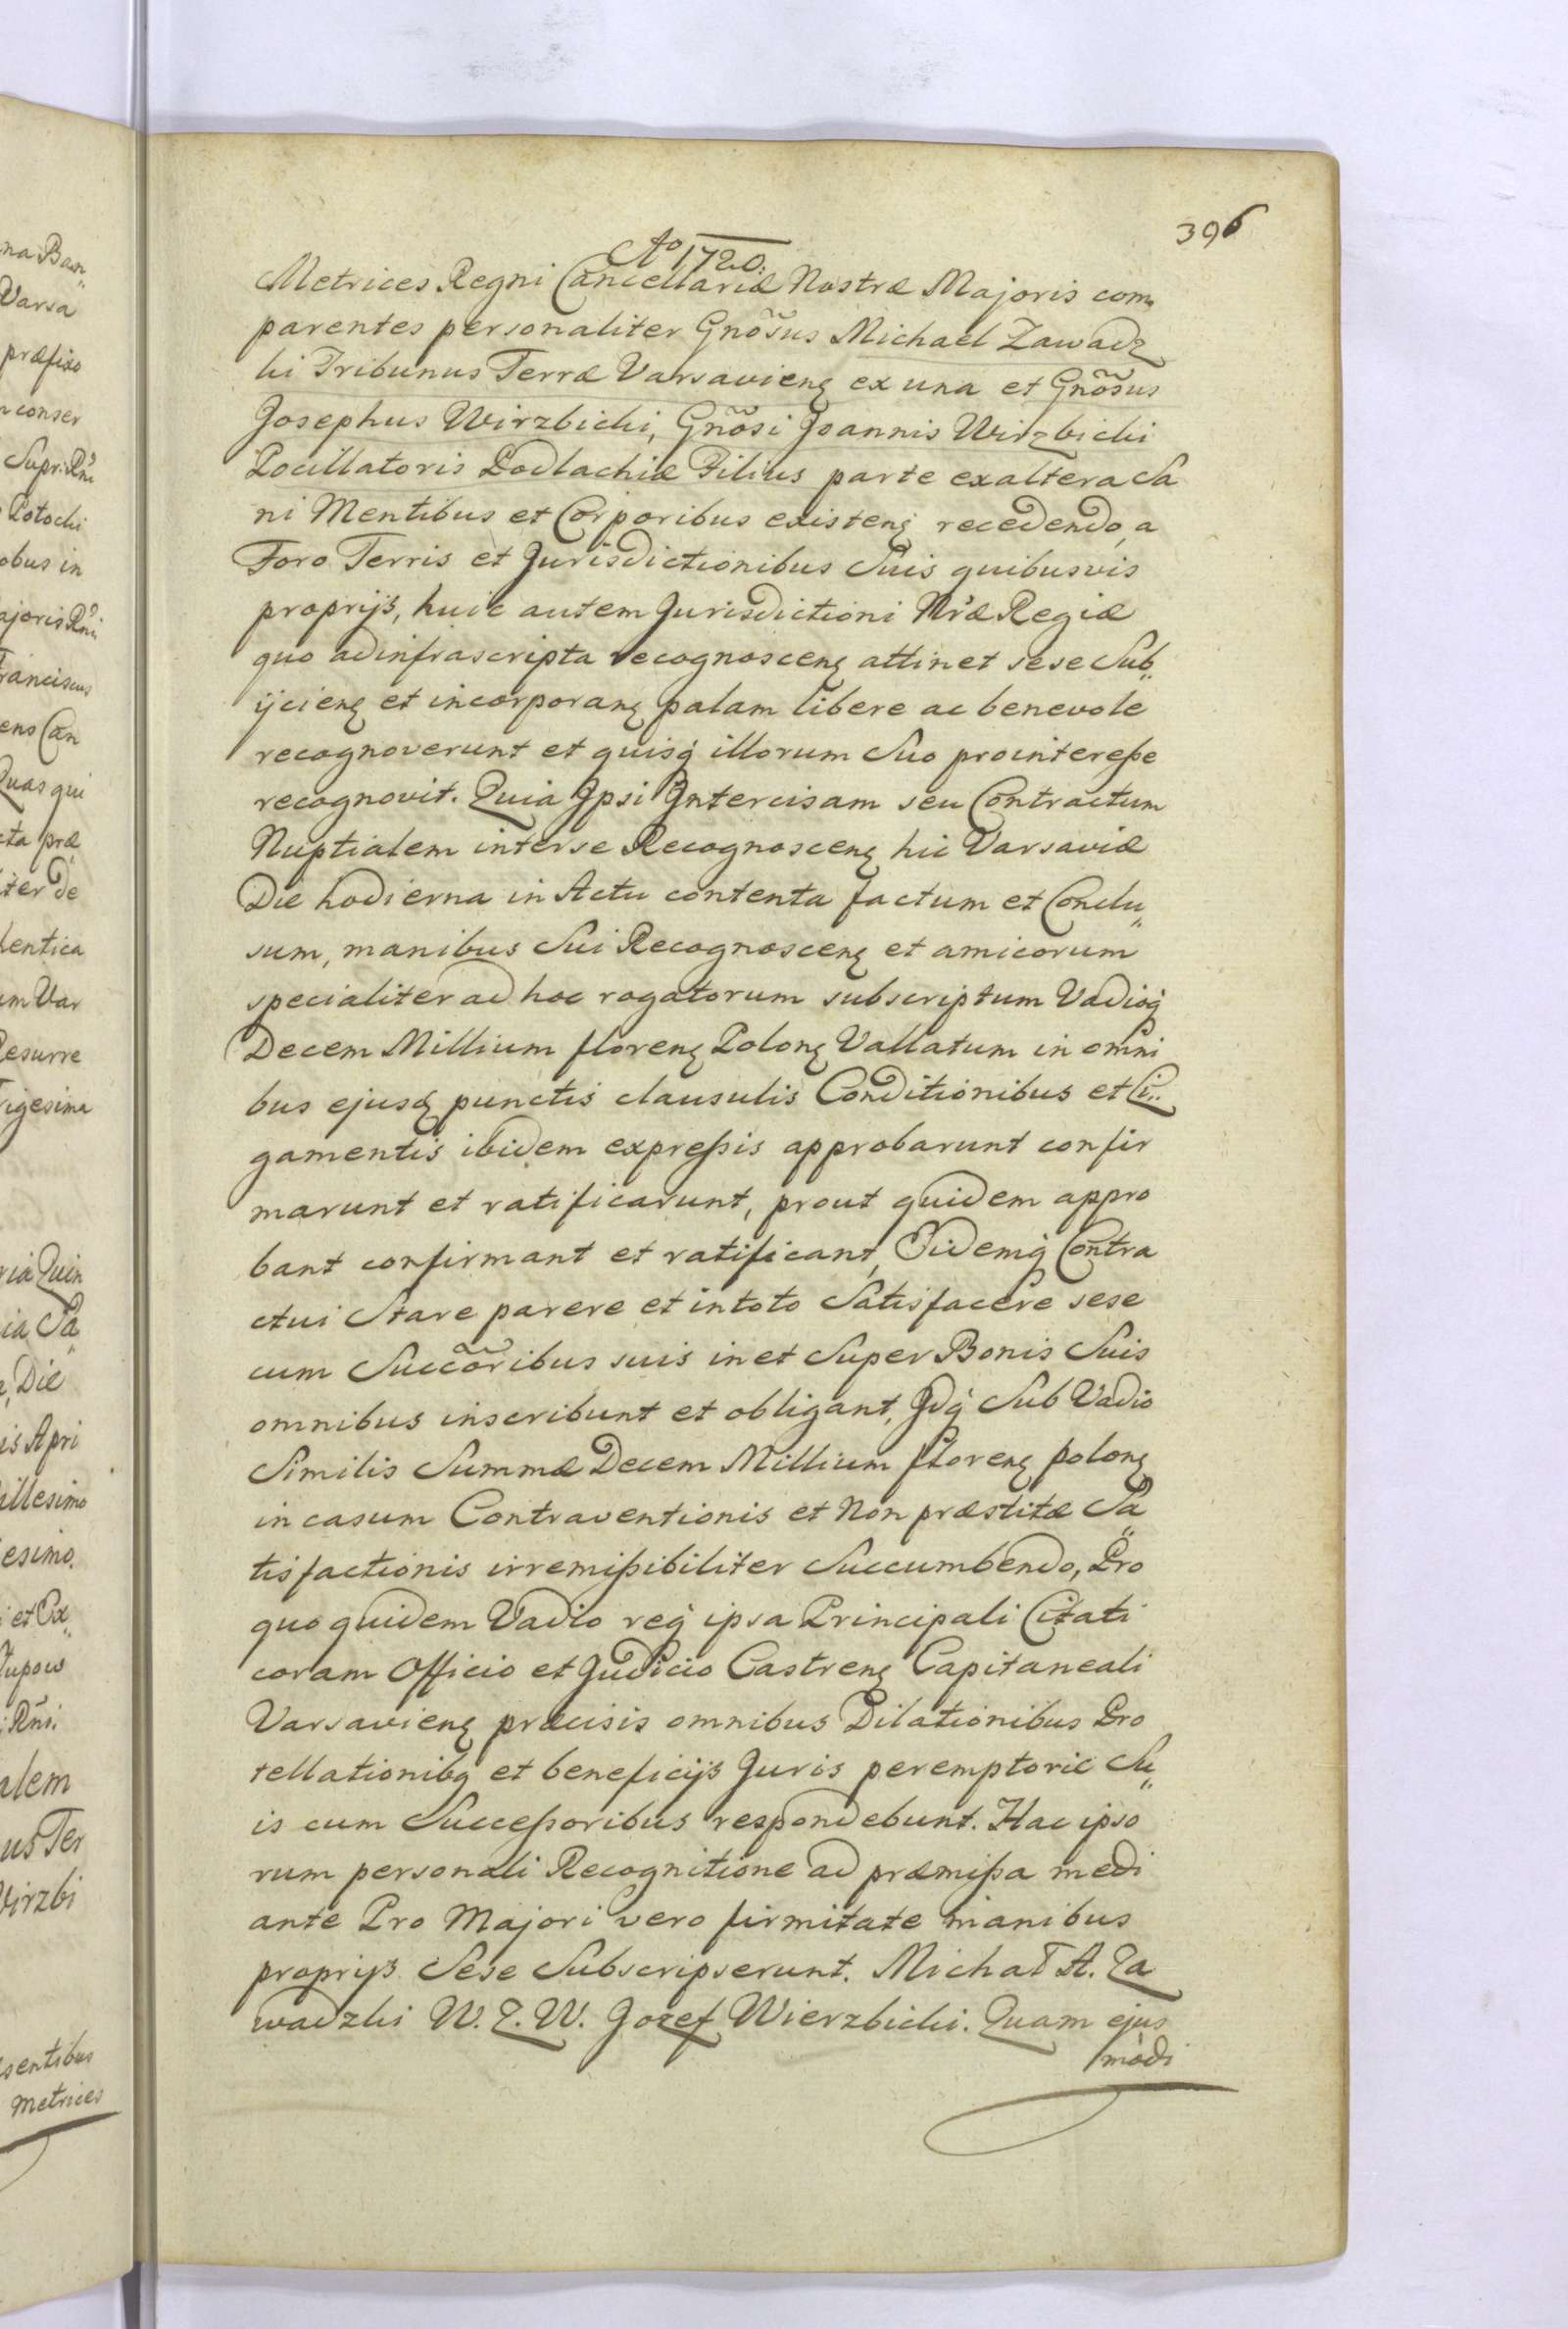 396
Aº 1720.
Metrices Regni Cancellariæ Nostræ Majoris com„
parentes personaliter Gnõsus Michael Zawadz
ki Tribunus Terræ Varsavieng ex una et Gnõsus
Josephus Wirzbicki, Gnõsi Joannis Wirzbicki
Pocillatoris Podlachiæ Filius parte exaltera Sa
ni Mentibus et Corporibus existeng recedendo, a
Foro Terris et Jurisdictionibus Suis quibusvis
proprijs, huic autem Jurisdictioni Nræ Regiæ
quo adinfrascripta recognosceng attinet sese Sub„
ijcieng et incorporang palam libere ac benevole
recognoverunt et quisq illorum Suo prointereße
recognovit. Quia Ipsi Intercisam seu Contractum
Nuptialem interse Recognosceng hic Varsaviæ
Die hodierna in Actu contenta factum et Conclu„
sum, manibus Sui Recognosceng et amicorum
specialiter ad hoc rogatorum subscriptum Vadioq
Decem Millium floreng Polong Vallatum in omni
bus ejusq punctis clausulis Conditionibus et Li„
gamentis ibidem expreßis approbarunt confir
marunt et ratificarunt, prout quidem appro
bant confirmant et ratificant, Eidemq Contra
ctui Stare parere et intoto Satisfacere sese
cum Succõribus suis inet Super Bonis Suis
omnibus inscribunt et obligant, Idq Sub Vadio
Similis Summæ Decem Millium floreng polong
in casum Contraventionis et Non præstitæ Sa„
tisfactionis irremißibiliter Succumbendo, Pro
quo quidem Vadio req ipsa Principali Citati
coram Officio et Judicio Castreng Capitaneali
Varsavieng præcisis omnibus Dilationibus Pro
tellationibq et beneficijs Juris peremptorie Su„
is cum Succeßoribus respondebunt. Hac ipso
rum personali Recognitione ad præmißa medi
ante Pro Majori vero firmitate manibus
proprijs Sese Subscripserunt. Michał A. Za
wadzki W. Z. W. Jozef Wierzbicki. Quam ejus
modi